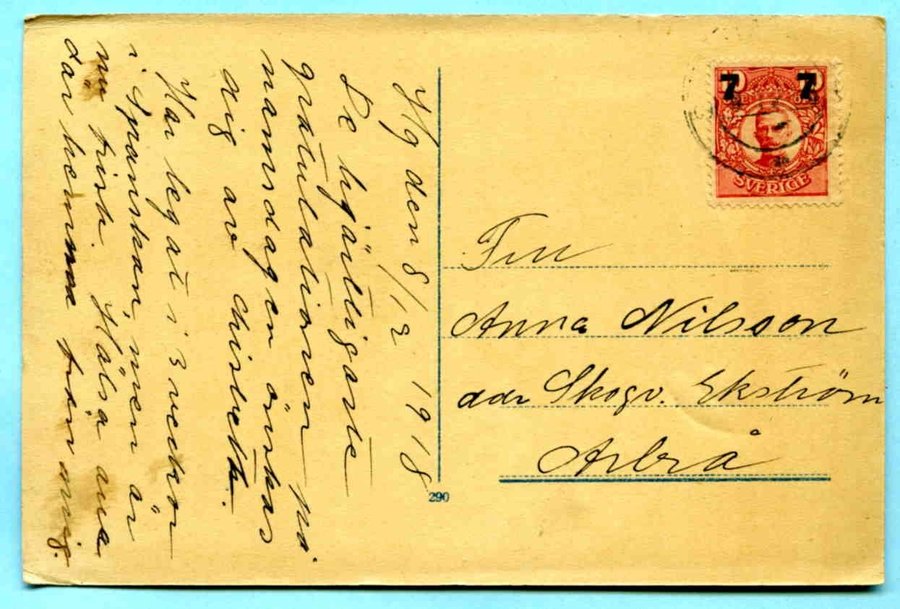 Hg den 8/12 1918
De hjärtligaste
gratulationer på
namnsdagen önskas
dig av Chislett.
Har legat i 3 veckor
i Spanskan men är
nu frisk. Hälsa alla
där hemma från mig.
7 7
SVERIGE
Till
Anna Nilsson
adr Skogv. Ekström
Arbrå
290